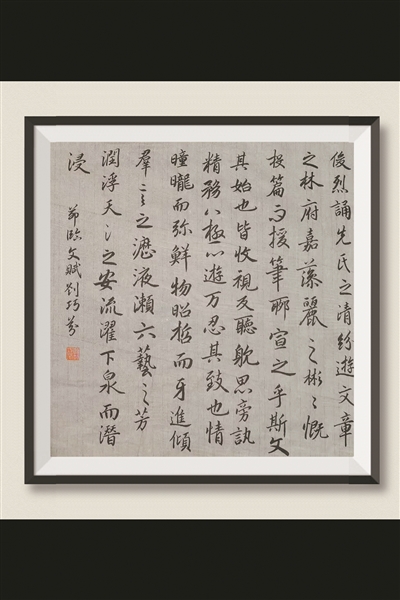 俊烈誦先氏之清紛遊文章
之林府嘉藻麗之彬彬慨
投篇而援筆聊宣之乎斯文
其始也皆收視反聽耽思旁訊
精務八極心遊万忍其致也情
瞳曨而弥鮮物昭晢而牙進傾
羣言之瀝液漱六藝之芳
潤浮天之安流濯下泉而潛
浸
節臨文賦劉巧